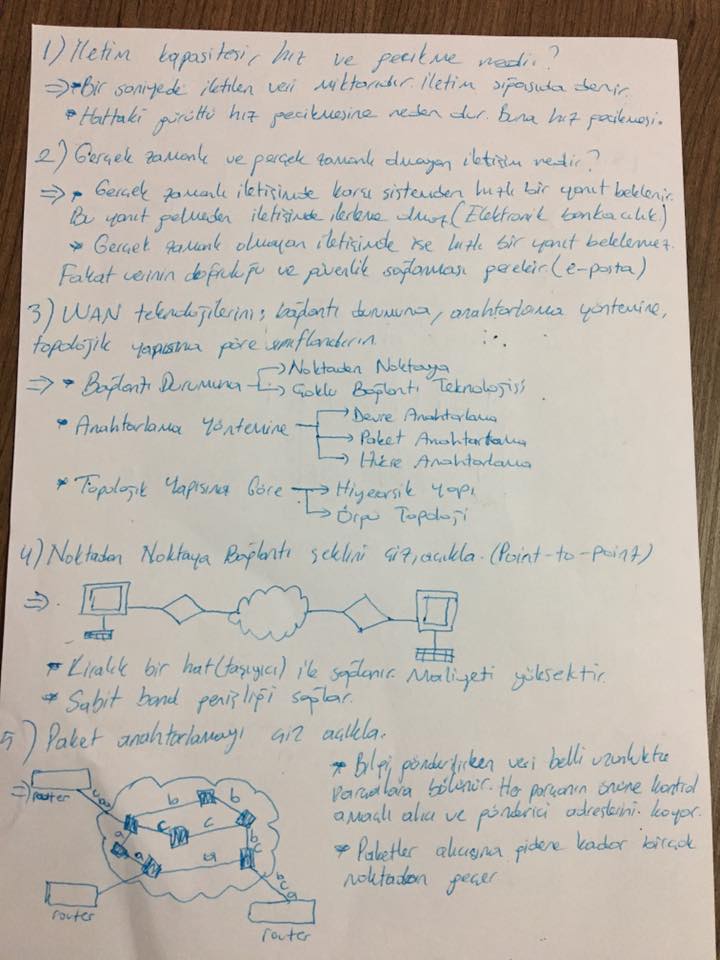 1) İletim kapasitesi, hız ve gecikme nedir?
⇒ * Bir saniyede iletilen veri miktarıdır. İletim sipasıda denir.
* Hattaki gürültü hız gecikmesine neden olur. Buna hız gecikmesi.
2) Gerçek zamanlı ve gerçek zamanlı olmayan iletişim nedir?
⇒ * Gerçek zamanlı iletişimde karşı sistemden hızlı bir yanıt beklenir.
Bu yanıt gelmeden iletişimde ilerleme olmaz (Elektronik bankacılık)
* Gerçek zamanlı olmayan iletişimde ise hızlı bir yanıt beklenmez.
Fakat verinin doğruluğu ve güvenlik sağlanması gerekir. (e-posta)
3) WAN teknolojilerini; bağlantı durumuna, anahtarlama yöntemine,
topolojik yapısına göre sınıflandırın.
⇒ * Bağlantı Durumuna → Noktadan Noktaya
→ Çoklu Bağlantı Teknolojisi
* Anahtarlama Yöntemine → Devre Anahtarlama
→ Paket Anahtarlama
→ Hücre Anahtarlama
* Topolojik Yapısına Göre → Hiyerarşik yapı
→ Örgü Topoloji
4) Noktadan Noktaya Bağlantı şeklini çiz, açıkla. (Point-to-point)
⇒ .
* Kiralık bir hat (taşıyıcı) ile sağlanır. Maliyeti yüksektir.
* Sabit band genişliği sağlar.
5) Paket anahtarlamayı çiz açıkla.
⇒ router
b b
c c
b c
a a
a
a
b c a
router
router
* Bilgi gönderilirken veri belli uzunlukta
parçalara bölünür. Her parçanın önüne kontrol
amaçlı alıcı ve gönderici adreslerini koyar.
* Paketler alıcısına gidene kadar birçok
noktadan geçer